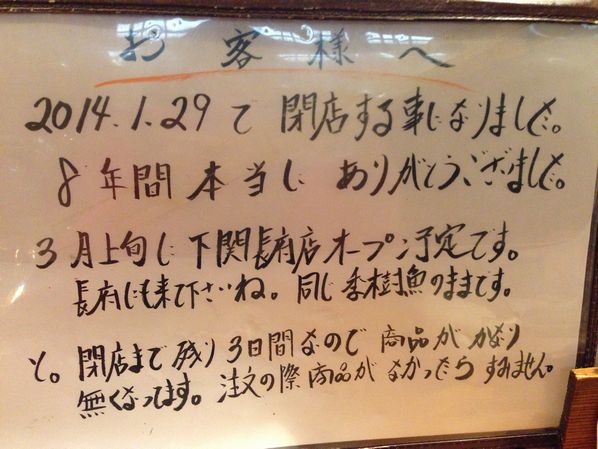 お客様へ
2014.1.29で閉店する事になりました。
8年間本当にありがとうございました。
3月上旬に下関長府店オープン予定です。
長府にも来て下さいね。同じ季樹魚のままです。
と。閉店まで残り3日間なので商品がかなり
無くなってます。注文の際商品がなかったらすみません。